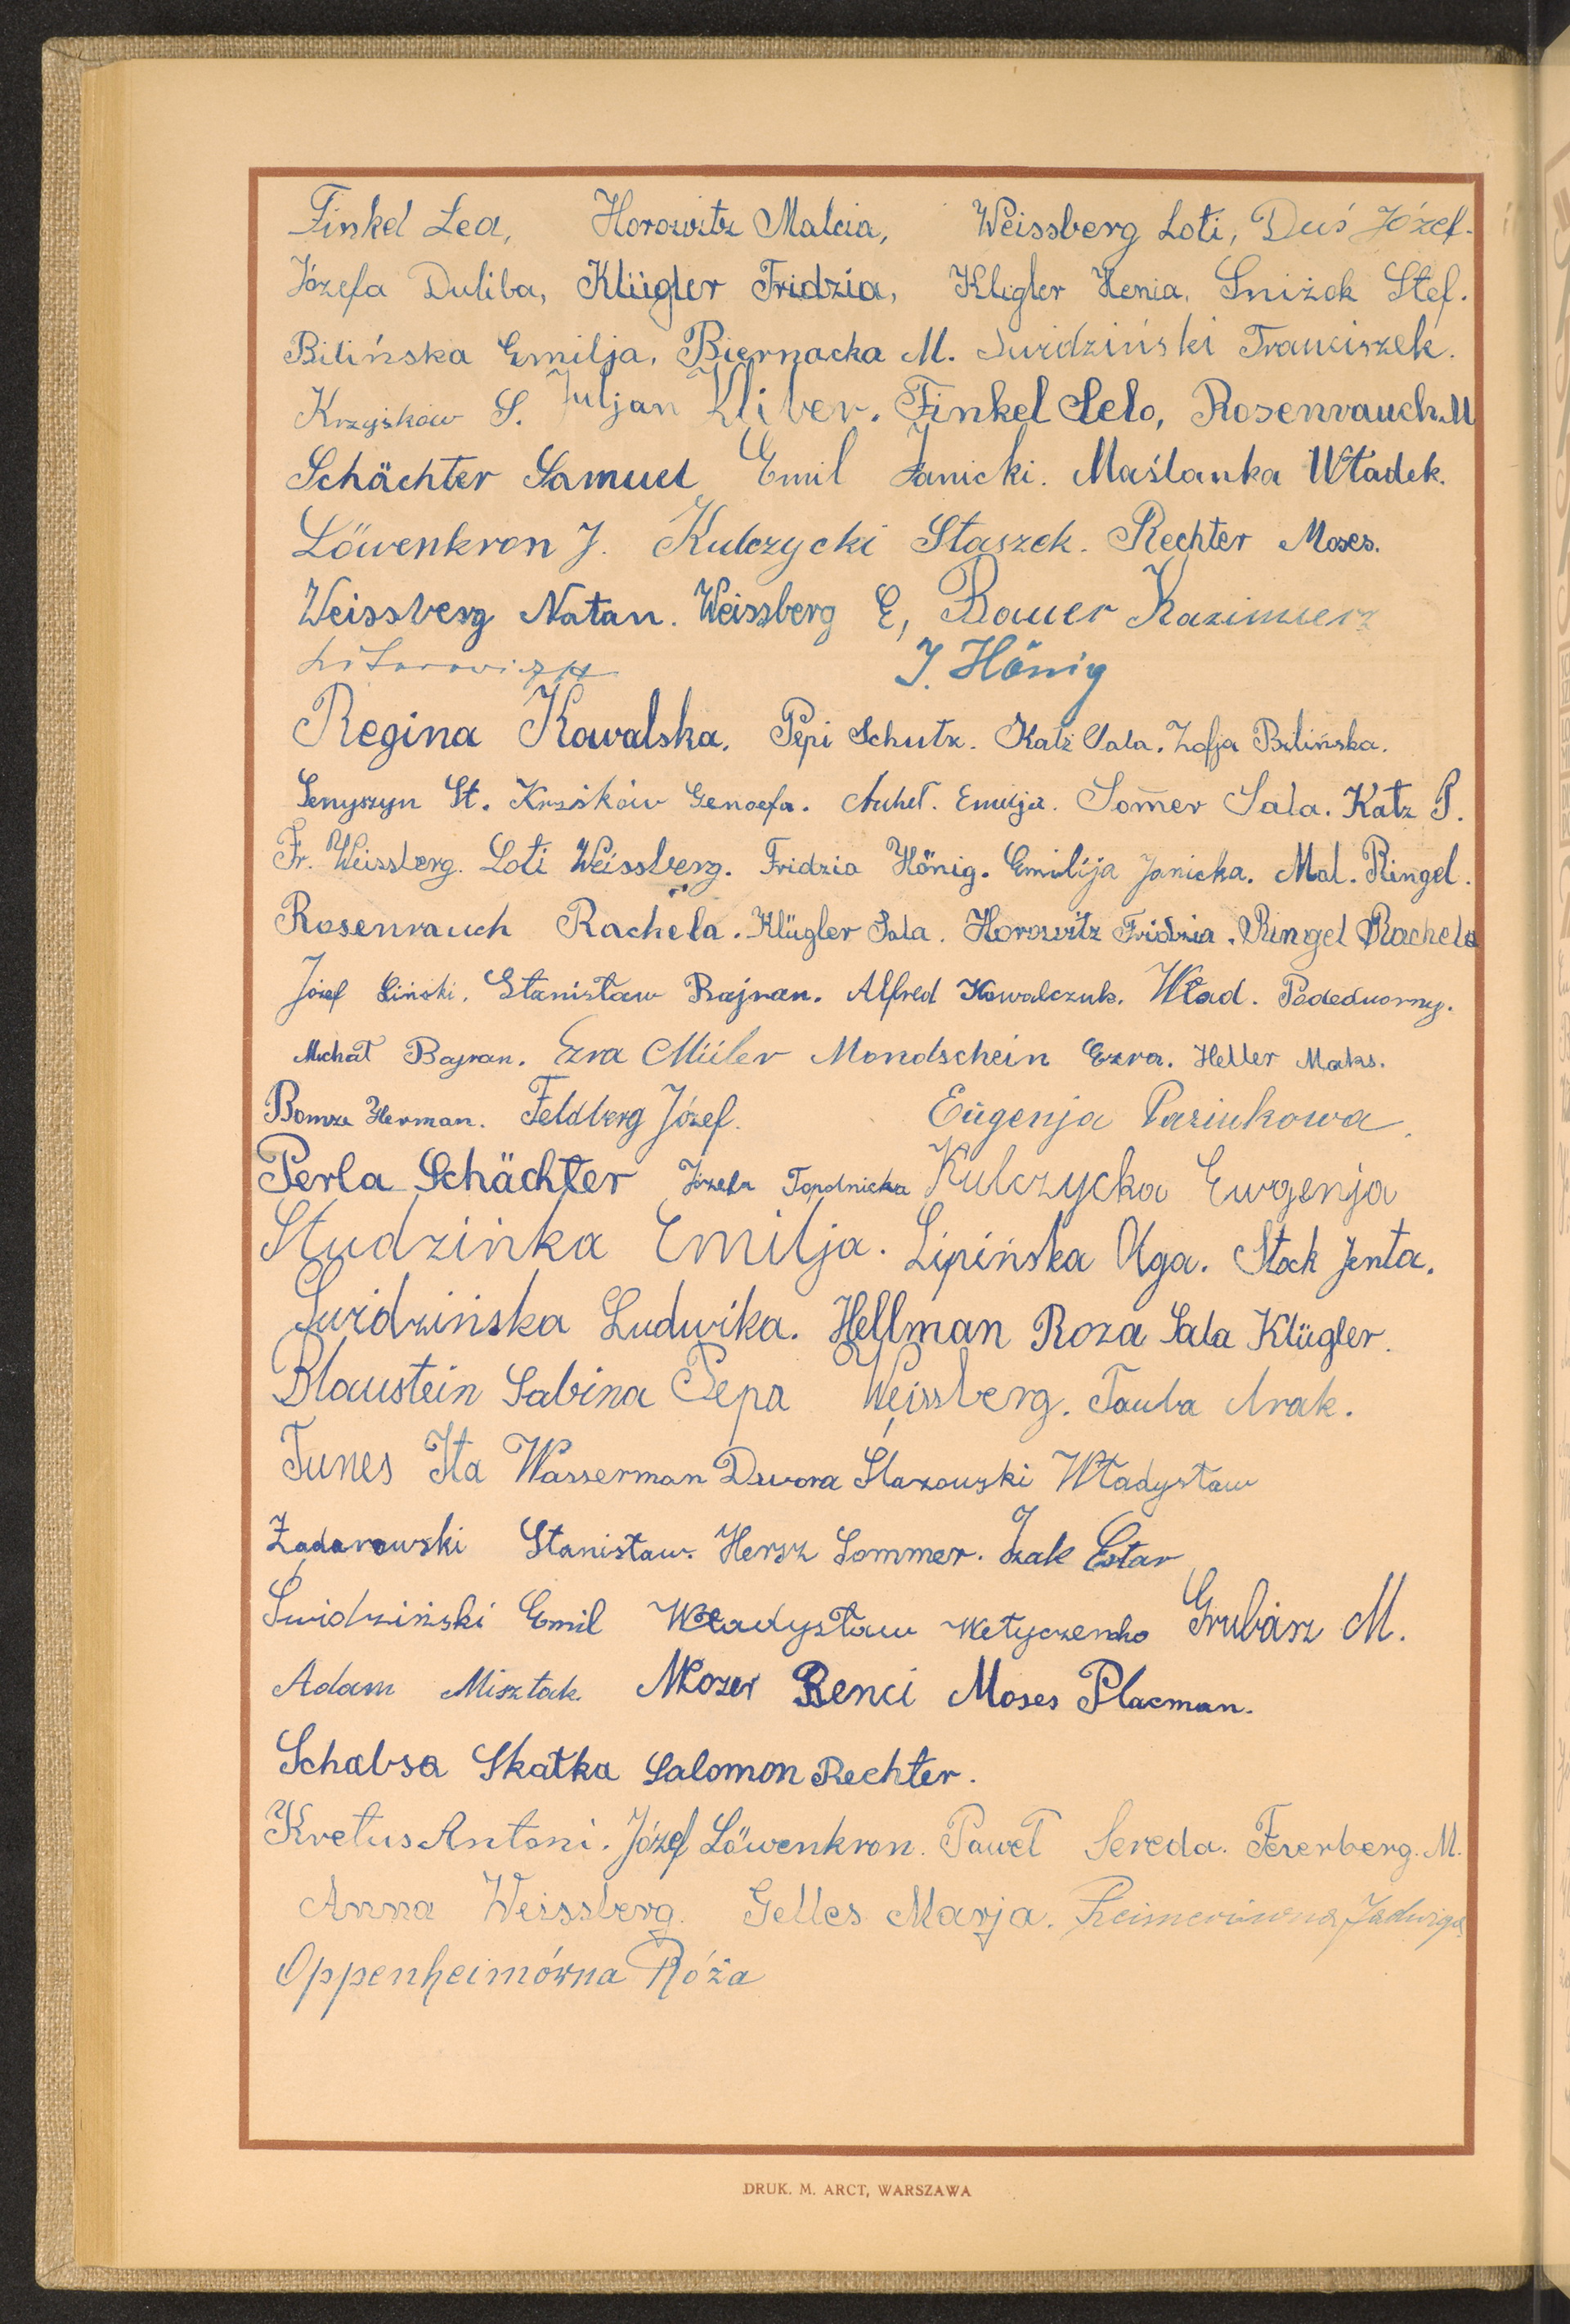 Finkel Lea, Horowitz Malcia, Weissberg Loti, Duś Józef.
Józefa Duliba, Klügler Fridzia, Kligler Henia, Śniżek Stef.
Bilińska Emilja, Biernacka M. Świdziński Franciszek.
Krzyśków S. Juljan Kliber. Finkel Lelo, Rosenrauch M
Schächter Samuel Emil Janicki. Maślanka Władek.
Löwenkron J. Kulczycki Staszek. Rechter Moses.
Weissberg Natan. Weissberg E, Bauer Kazimierz
J. Hönig
Regina Kowalska. Pepi Schutz. Katz Sala. Zofja Bilińska.
Senyszyn St. Krzśków Genoefa. Emilja. Som̄er Sala. Katz P.
Fr. Weissberg. Loti Weissberg. Fridzia Hönig. Emilija Janicka. Mal. Ringel.
Rosenrauch Rachela. Klügler Sala. Horowitz Fridzia. Ringel Rachela
Józef Liński. Stanisław Bajran. Alfred Kowalczuk. Wład. Padedworny.
Michał Bajran. Ezra Müler Mondschein Ezra. Heller Maks.
Bomze Herman. Feldberg Józef. Eugenja Paziukowa.
Perla Schächter Józefa Topolnicka Kulczycka Ewgenja
Studzińka Emilja. Lipińska Olga. Stock Jenta.
Świdzińska Ludwika. Hellman Roza Sala Klügler.
Blaustein Sabina Pepa Weissberg. Tauba Arak.
Tunes Ita Wasserman Dwora Ślazowski Władysław
Żądarowski Stanisław. Hersz Sommer. Izak Estar
Świdziński Emil Władysław Wetyczenko Grubasz M.
Adam Misztak. Mozer Benci Moses Placman.
Schabsa Skałka Salomon Rechter.
Kretus Antoni. Józef Löwenkron. Paweł Sereda. Feserberg. M.
Anna Weissberg. Gelles Marja. Reimerówna Jadwiga
Oppenheimówna Róża
DRUK. M. ARCT, WARSZAWA